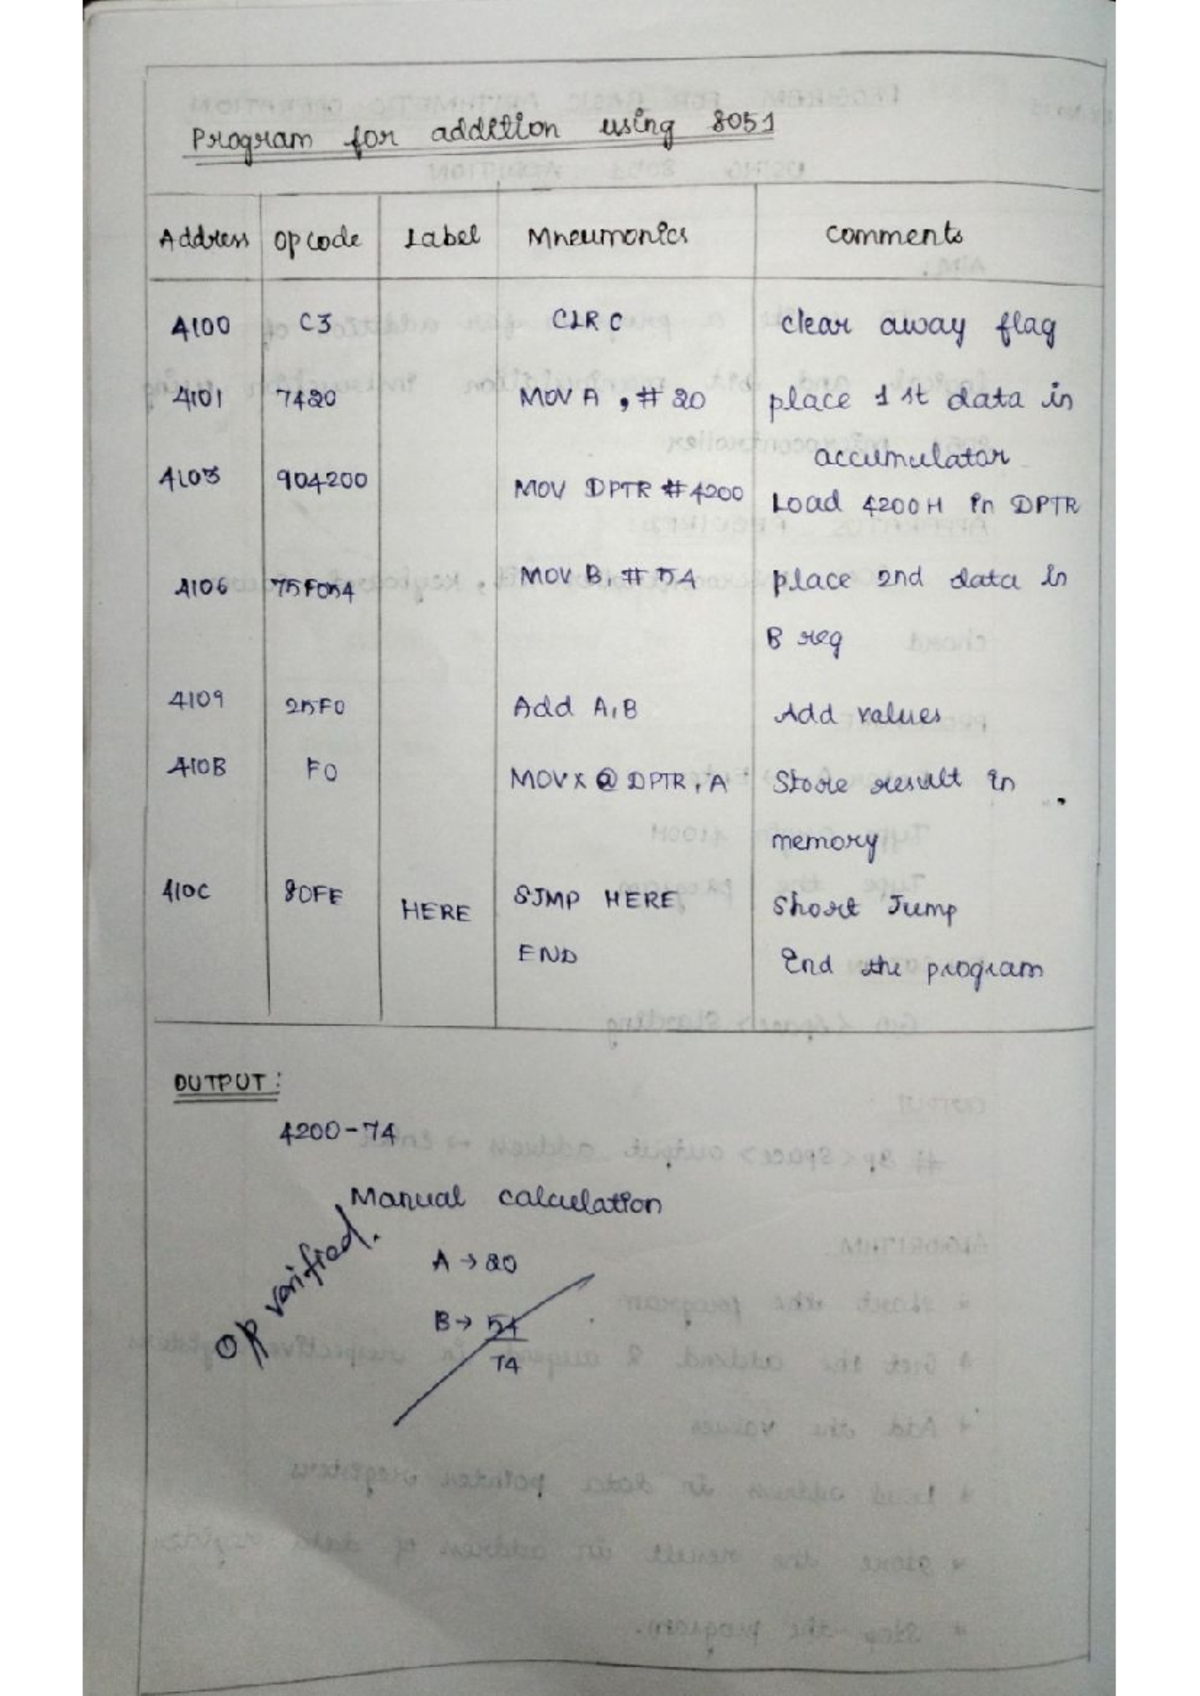 Program for addition using 8051
Address Opcode Label Mneumonics comments
4100 C3 CLR C clear away flag
4101 7420 MOV A , # 20 place 1 st data in
accumulator
4103 904200 MOV DPTR #4200 Load 4200H in DPTR
4106 75F054 MOV B, # 54 place 2nd data in
B reg
4109 25F0 Add A,B Add values
410B F0 MOVX @ DPTR, A Store result in
memory
410C 80FE HERE SJMP HERE Short Jump
END End the program
OUTPUT :
4200-74
Manual calculation
A → 20
B → 54
74
Op verified.